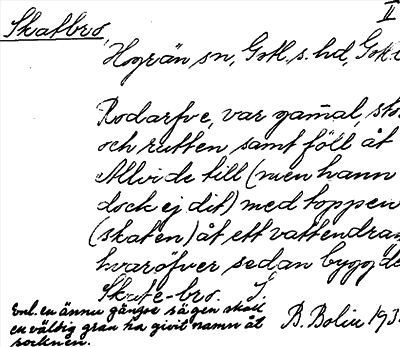 II
Skatbro,
Hogrän sn, Gotl. s. hd, Gotl.
Rodarfve, var gammal, sto
och rutten samt föll åt
Allvide till (men hann
dock ej dit) med toppen
(skaten) åt ett vattendrag
hvaröfver sedan byggde
Skate-bro. S.
Enl. en ännu gängse sägen skall
en väldig gran ha givit namn åt
socknen.
B. Bolin 193